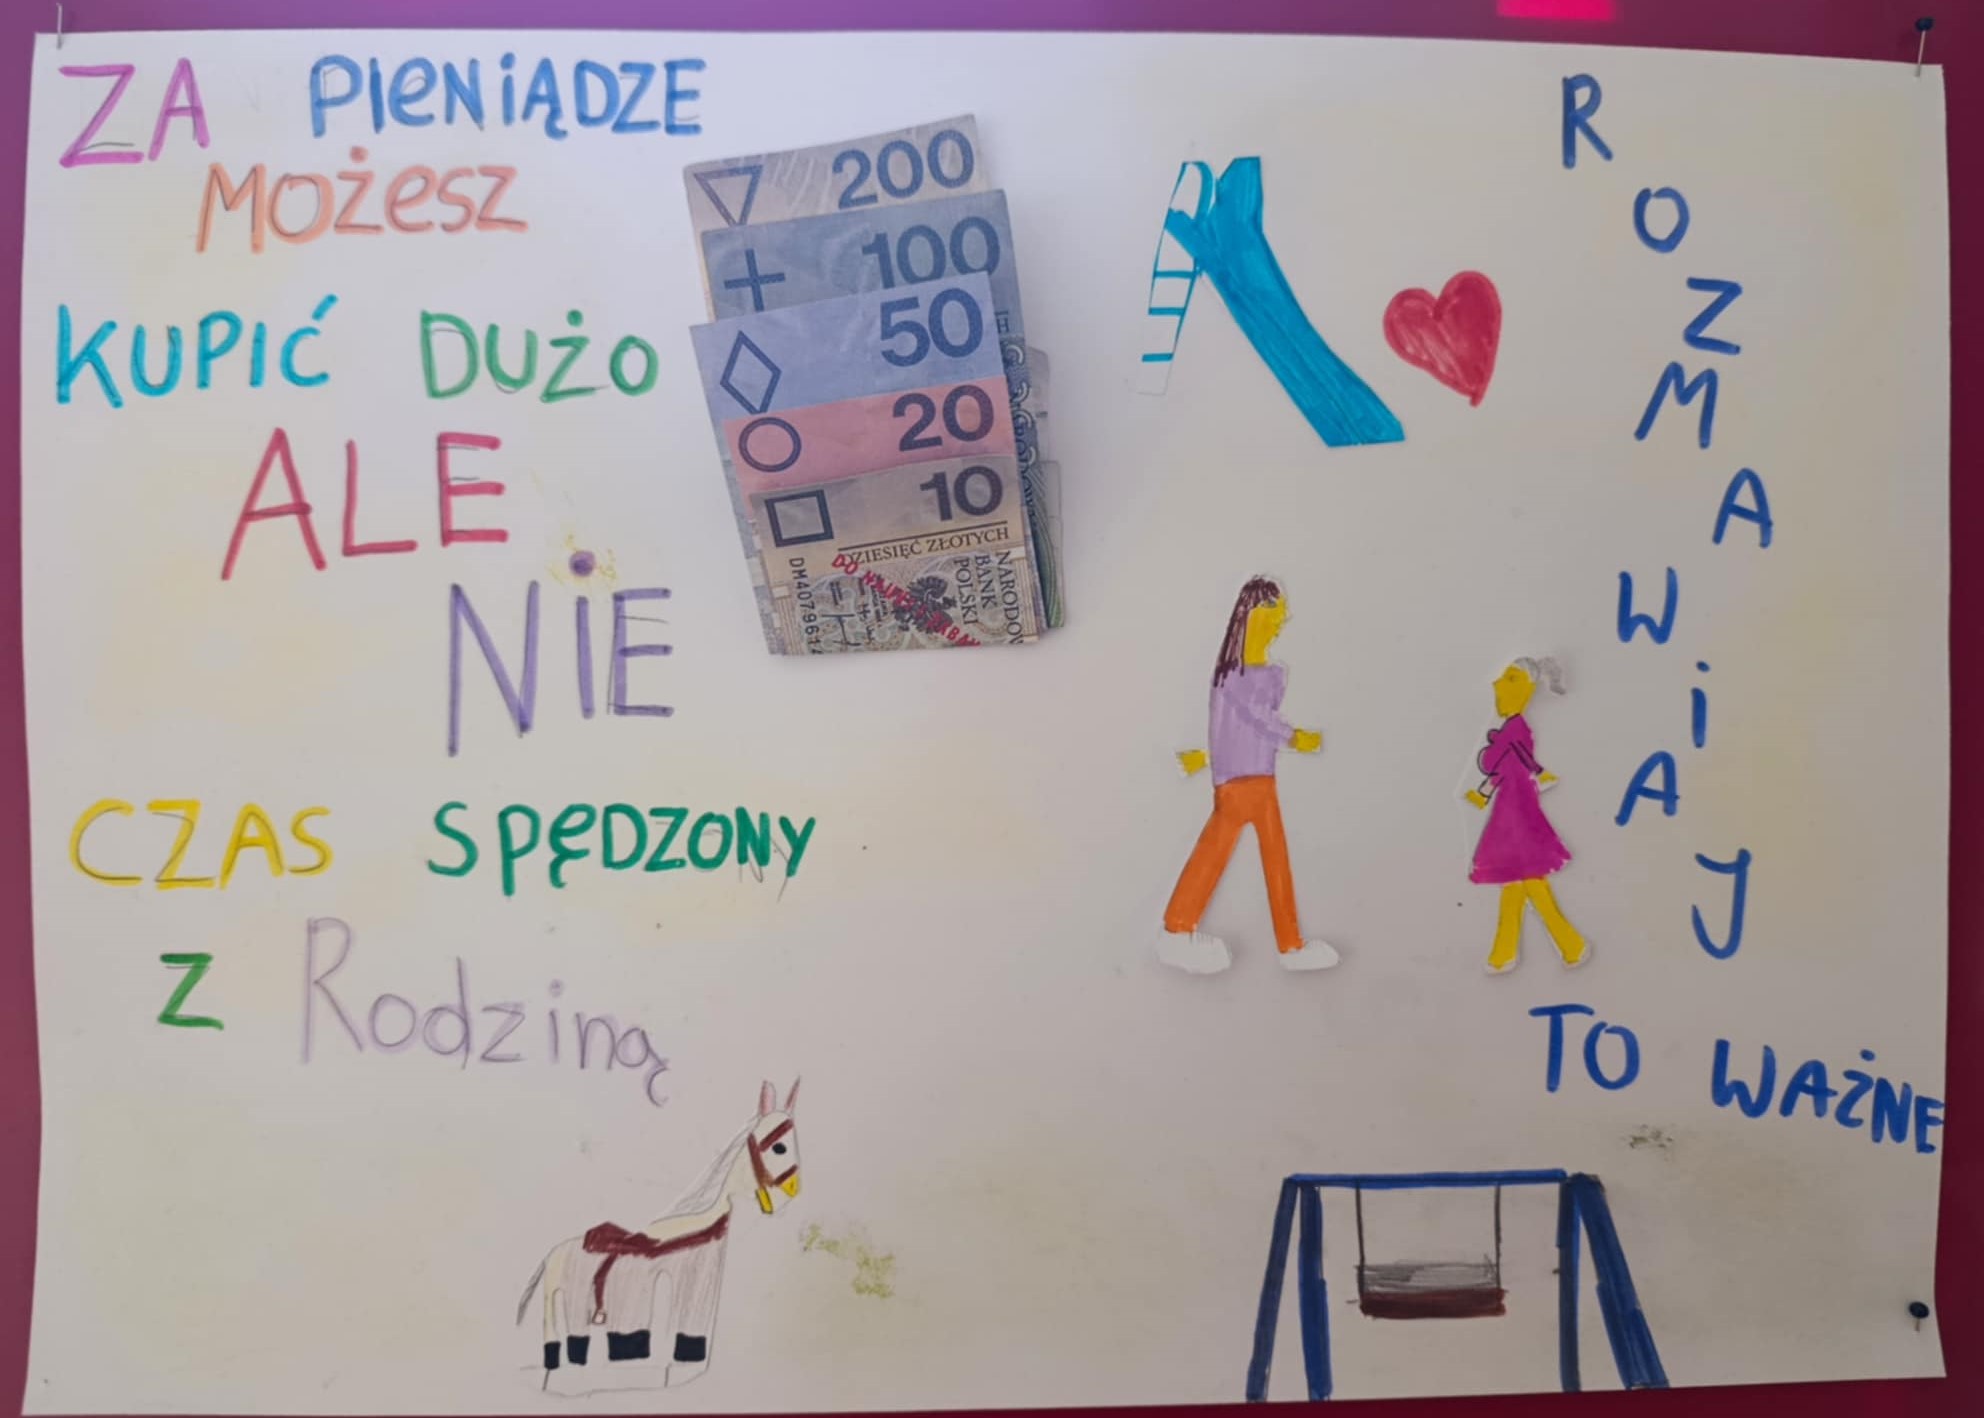 ZA PIENIĄDZE
MOŻESZ
KUPIĆ DUŻO
ALE
NIE
CZAS SPĘDZONY
Z Rodziną
200
100
50
20
10
DZIESIĘĆ ZŁOTYCH
NARODOWY
BANK
POLSKI
ROZMAWIAJ
TO WAŻNE